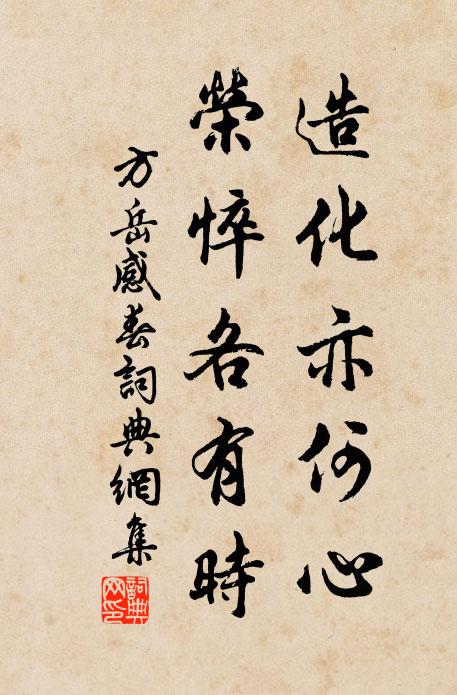 造化亦何心
榮悴各有時
方岳感春詞典網集
詞典网印